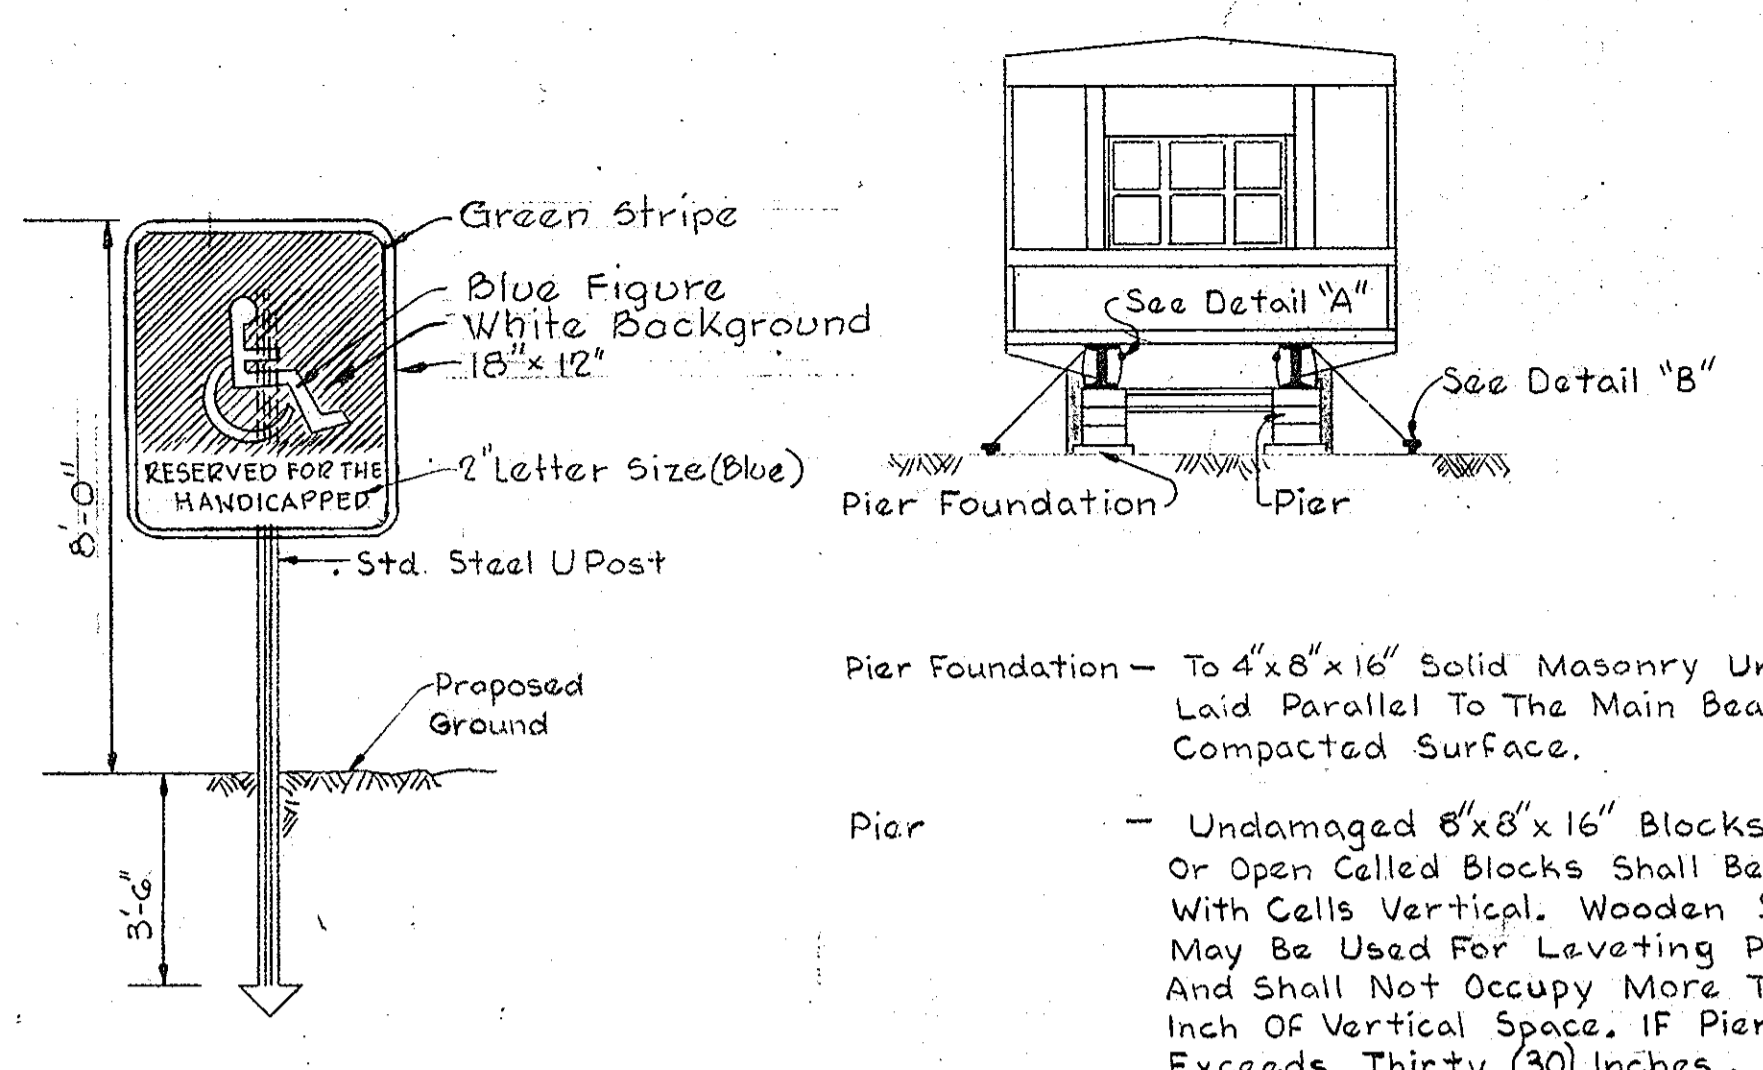 Green Stripe
Blue Figure
White Background
18" x 12"
RESERVED FOR THE
HANDICAPPED
2" Letter Size (Blue)
8'-0"
Std. Steel U Post
Proposed
Ground
3'-6"
See Detail "A"
See Detail "B"
Pier Foundation
Pier
Pier Foundation - To 4" x 8" x 16" Solid Masonry
Laid Parallel To The Main
Compacted Surface.
Pier - Undamaged 8" x 8" x 16" Blocks
Or Open Celled Blocks Shall Be
With Cells Vertical. Wooden
May Be Used For Leveting
And Shall Not Occupy More
Inch Of Vertical Space. IF Pier
Exceeds Thirty (30) Inches